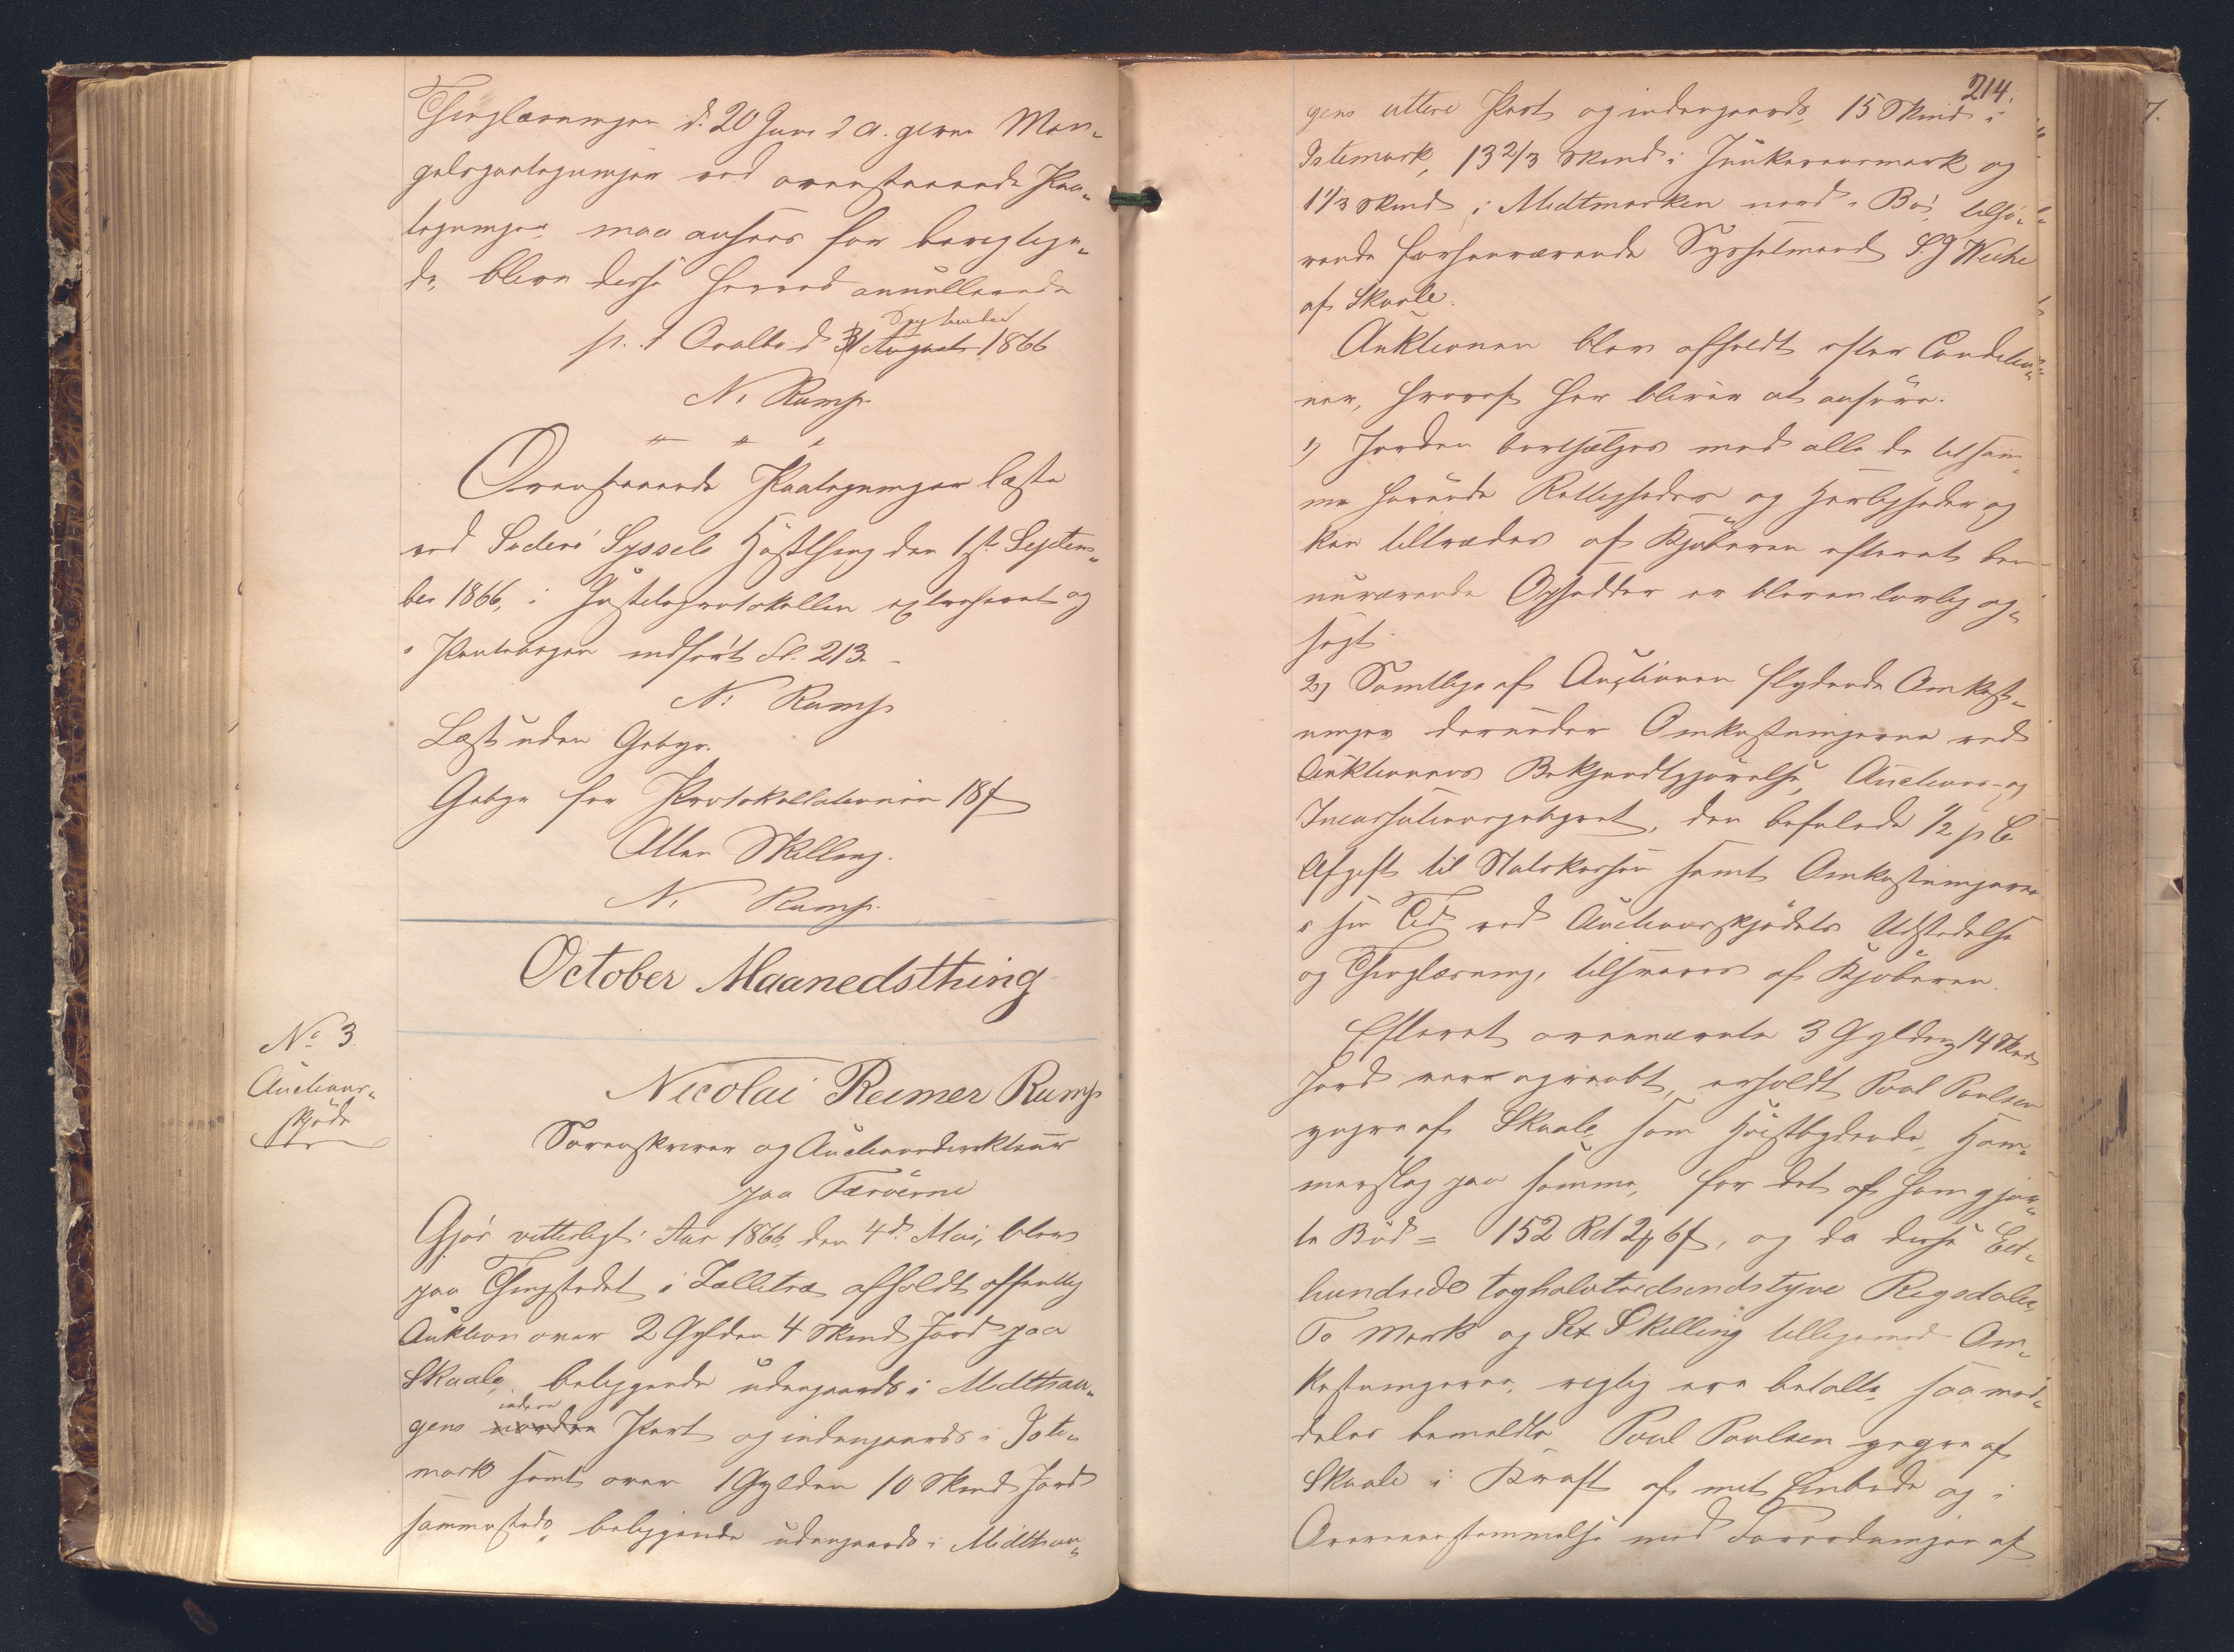 Thinglæsningen d. 20 Juni d A. givne Man-
gelspaategninger ved ovenstaaende Paa-
tegninger maa ansees for berigtige-
de, bleve disse herved annullerede
p. t Qvalbö d 1 September 1866
N. Rump
Ovenstaaende Paategninger læste
ved Suderö Syssels Høstthing den 1ste Septem-
ber 1866, i Justitsprotokollen extraheret og
i Pantebogen indført Fol. 213.
N. Rump
Læst uden Gebyr.
Gebyr for Protokollationen 18 ß
Atten Skilling.
N. Rump.
October Maanedsthing
No 3.
Auctions-
skjøde
Nicolai Reimer Rump
Sorenskriver og Auctionsdirekteur
paa Færöerne
Gjör vitterligt: Aar 1866, den 4de Mai, blev
paa Thingstedet i Lællitræ afholdt offentlig
Auktion over 2 Gylden 4 Skind Jord paa
Skaale, beliggende udengaards i Midthau-
gens indere Part og indengaards i Iste-
mark samt over 1 Gylden 10 Skind Jord
sammesteds, beliggende udengaards i Midthau-
214.
gens uttere Part og indengaards, 15 Skind i
Istemark, 13 2/3 Skind i Junkerensmark og
1 1/3 Skind i Midtmarken nord i Bö, tilhö-
rende forhenværende Sysselmand S. J Weihe
af Skaale.
Auktionen blev afholdt efter Conditio-
ner, hvoraf her bliver at anføre:
1) Jorden bortsælges med alle de til sam-
me hørende Rettigheder og Herligheder og
kan tiltrædes af Kjøberen efterat den
nuværende Opsidder er bleven lovlig op-
sagt.
2) Samtlige af Auctionen flydende Omkost-
ninger derunder Omkostningerne ved
Auktionens Bekjendtgjørelse, Auctions- og
Incassationsgebyret, den befalede 1/2 p C
Afgift til Statskassen samt Omkostningerne
i sin Tid ved Auctionsskjødets Udstedelse
og Thinglæsning, tilsvares af Kjøberen.
Efterat ovennævnte 3 Gylden 14 Skind
Jord vare opraabt, erholdt Poul Poulsen
yngre af Skaale, som Høistbydende, Ham-
merslag paa samme, for det af ham gjor-
te Bud = 152 Rd 2 ₰ 6 ß, og da disse Eet-
hundrede toghalvtredsindstyve Rigsdaler
To Mark og Sex Skilling tilligemed Om-
kostningerne, rigtig ere betalte, saa med-
deles bemeldte Poul Poulsen yngre af
Skaale i Kraft af mit Embede og i
Overeensstemmelse med Forordningen af